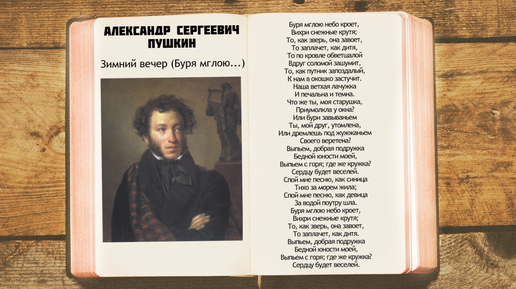 АЛЕКСАНДР СЕРГЕЕВИЧ
ПУШКИН
Зимний вечер (Буря мглою...)
Буря мглою небо кроет,
Вихри снежные крутя;
То, как зверь, она завоет,
То заплачет, как дитя,
То по кровле обветшалой
Вдруг соломой зашумит,
То, как путник запоздалый,
К нам в окошко застучит.
Наша ветхая лачужка
И печальна и темна.
Что же ты, моя старушка,
Приумолкла у окна?
Или бури завываньем
Ты, мой друг, утомлена,
Или дремлешь под жужжаньем
Своего веретена?
Выпьем, добрая подружка
Бедной юности моей,
Выпьем с горя; где же кружка?
Сердцу будет веселей.
Спой мне песню, как синица
Тихо за морем жила;
Спой мне песню, как девица
За водой поутру шла.
Буря мглою небо кроет,
Вихри снежные крутя;
То, как зверь, она завоет,
То заплачет, как дитя.
Выпьем, добрая подружка
Бедной юности моей,
Выпьем с горя; где же кружка?
Сердцу будет веселей.